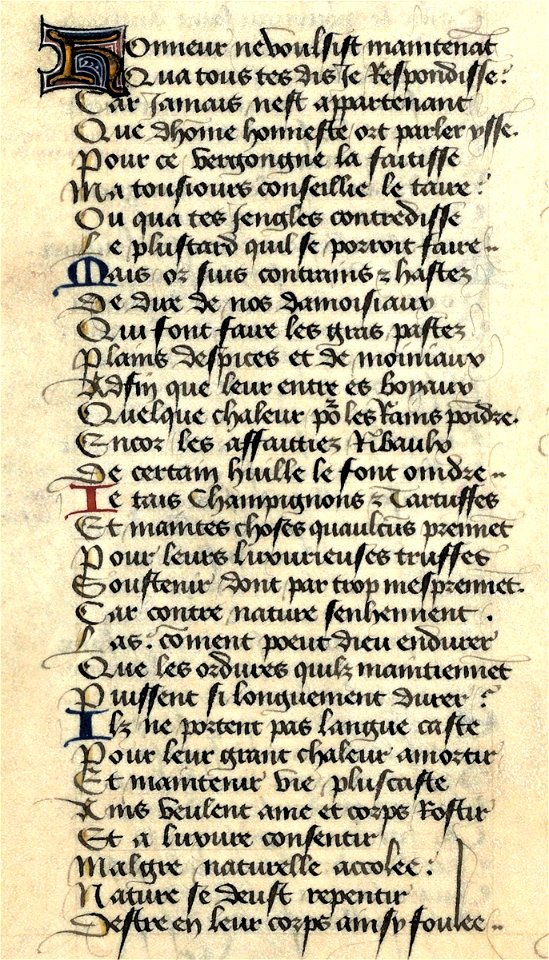 Honneur ne voulsist maintenāt
Qua tous tes dis Je Respondisse:
Car Jamais nest appartenant
Que dhōme honneste ort parler ysse.
Pour ce vergongne la faitisse
Ma tousiours conseillie le taire:
Ou qua tes Jengles contredisse
Le plustard quil se porroit faire..
Mais or suis contrains ⁊ hastez
De dire de nos damoisiaux
Qui font faire les gras pastez
Plains despices et de moiniaux
Adfin que leur entre es boyaux
Quelque chaleur po² les Rains poīdre.
Encor les affaittiez Ribaulx
De certain huille le font oindre..
Je tais Champignons ⁊ Tartusses
Et maintes choses quaultūs prennēt
Pour leurs luxurieuses truffes
Soustenir dont par trop mesprennēt.
Car contre nature senhennent.
Las: cōment poeut dieu endurer
Que les ordures quilz maintiennēt
Puissent si longuement durer?
Ilz ne portent pas langue caste
Pour leur grant chaleur amortir
Et maintenir vie plus caste
Ains veulent ame et corps Rostir
Et a luxure consentir
Malgre naturelle accolee:
Nature se deust repentir
Destre en leur corps ainsy foulee..